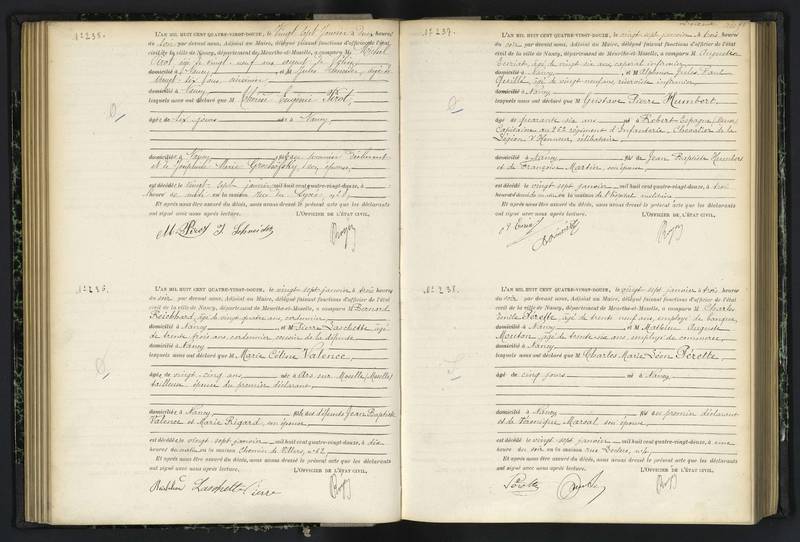 N° 235.
L'AN MIL HUIT CENT QUATRE-VINGT-DOUZE, le vingt sept janvier à deux heures
du soir par devant nous, Adjoint au Maire, délégué faisant fonctions d'officier de l'état
civil de la ville de Nancy, département de Meurthe-et-Moselle, a comparu M. Michel
Pirot âgé de vingt neuf ans
domicilié à Nancy et M Jules Schneider, âgé de
vingt six ans
domicilié à Nancy
lesquels nous ont déclaré que M Thérèse Eugénie Pirot,
âgée de six jours née à Nancy,
domiciliée à Nancy, fille du premier déclarant
et de Joséphine Marie son épouse,
est décédée le vingt sept janvier mil huit cent quatre-vingt-douze, à
heure en sa maison rue
Et après nous être assuré du décès, nous avons dressé le présent acte que les déclarants
ont signé avec nous après lecture. L'OFFICIER DE L'ÉTAT CIVIL,
M. Pirot J. Schneider
N° 236.
L'AN MIL HUIT CENT QUATRE-VINGT-DOUZE, le vingt sept janvier à trois heures
du soir par devant nous, Adjoint au Maire, délégué faisant fonctions d'officier de l'état
civil de la ville de Nancy, département de Meurthe-et-Moselle, a comparu M Bernard
âgé de vingt quatre ans, cordonnier,
domicilié à Nancy et M Pierre Laschette âgé
de trente trois ans, cordonnier, cousin de la défunte
domicilié à Nancy
lesquels nous ont déclaré que M Marie Céline Valence,
âgée de vingt-cinq ans née à Ars sur Moselle (Moselle)
tailleuse épouse du premier déclarant,
domiciliée à Nancy, fille des défunts Jean Baptiste
Valence et Marie Rigard, son épouse,
est décédée le vingt sept janvier mil huit cent quatre-vingt-douze, à dix
heures du matin en sa maison Chemin de Villers, n° 62,
Et après nous être assuré du décès, nous avons dressé le présent acte que les déclarants
ont signé avec nous après lecture. L'OFFICIER DE L'ÉTAT CIVIL,
Laschette Pierre
N° 237.
L'AN MIL HUIT CENT QUATRE-VINGT-DOUZE, le vingt sept janvier à trois heures
du soir par devant nous, Adjoint au Maire, délégué faisant fonctions d'officier de l'état
civil de la ville de Nancy, département de Meurthe-et-Moselle, a comparu M Augustin
âgé de vingt six ans, caporal infirmier,
domicilié à Nancy, et M Alphonse Jules Paul
âgé de vingt neuf ans, infirmier
domicilié à Nancy
lesquels nous ont déclaré que M Gustave Pierre Humbert,
âgé de quarante six ans né à Robert-Espagne (Meuse)
Capitaine au 262 régiment d'Infanterie, Chevalier de la
Légion d'Honneur, célibataire,
domicilié à Nancy fils de Jean Baptiste Humbert
et de Françoise Martin, son épouse,
est décédé le vingt sept janvier mil huit cent quatre-vingt-douze, à trois
heures du matin en sa maison de l'hôpital militaire
Et après nous être assuré du décès, nous avons dressé le présent acte que les déclarants
ont signé avec nous après lecture. L'OFFICIER DE L'ÉTAT CIVIL,
N° 238.
L'AN MIL HUIT CENT QUATRE-VINGT-DOUZE, le vingt sept janvier à trois heures
du soir par devant nous, Adjoint au Maire, délégué faisant fonctions d'officier de l'état
civil de la ville de Nancy, département de Meurthe-et-Moselle, a comparu M Charles
Emile Pérette, âgé de trente neuf ans, employé de banque,
domicilié à Nancy et M Mathieu Auguste
Mouton, âgé de trente six ans, employé de commerce,
domicilié à Nancy,
lesquels nous ont déclaré que M Charles Marie Léon Pérette,
âgé de cinq jours né à Nancy,
domicilié à Nancy fils du premier déclarant
et de Véronique Marsal son épouse,
est décédé le vingt sept janvier mil huit cent quatre-vingt-douze, à une
heure du soir en sa maison rue Leclerc, n°
Et après nous être assuré du décès, nous avons dressé le présent acte que les déclarants
ont signé avec nous après lecture. L'OFFICIER DE L'ÉTAT CIVIL,
Pérette